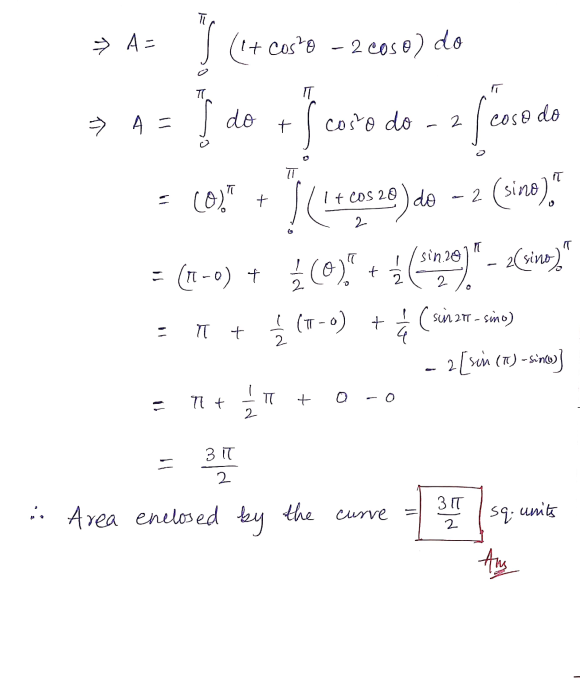 ⇒ A = ∫₀^π (1 + cos²θ − 2 cosθ) dθ
⇒ A = ∫₀^π dθ + ∫₀^π cos²θ dθ − 2 ∫₀^π cosθ dθ
= (θ)₀^π + ∫₀^π ((1 + cos 2θ)/2) dθ − 2 (sinθ)₀^π
= (π−0) + 1/2 (θ)₀^π + 1/2 (sin2θ/2)₀^π − 2(sinθ)₀^π
= π + 1/2 (π−0) + 1/4 (sin2π − sin0)
− 2[sin(π) − sin(0)]
= π + 1/2 π + 0 − 0
= 3π/2
∴ Area enclosed by the curve = 3π/2 sq. units
Ans